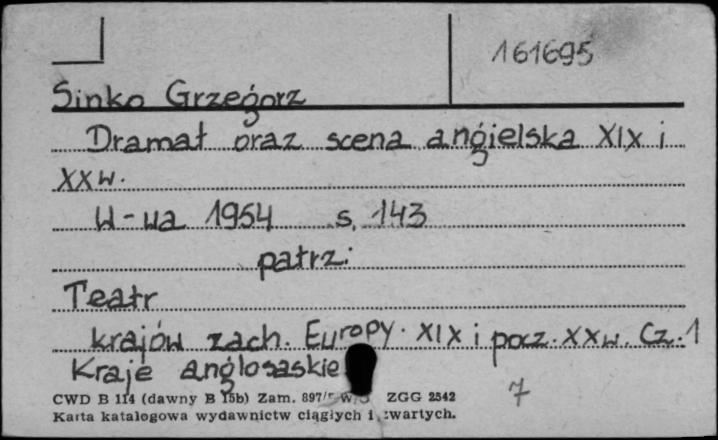 161695
Sinko Grzegorz
Dramat oraz scena angielska XIX i
XX w.
W-wa 1954 s. 143
patrz:
Teatr
krajów zach. Europy. XIX i pocz. XX w. Cz. 1
Kraje anglosaskie
7
CWD B 114 (dawny B 15b) Zam. 897/ W/ ZGG 2542
Karta katalogowa wydawnictw ciągłych i zwartych.